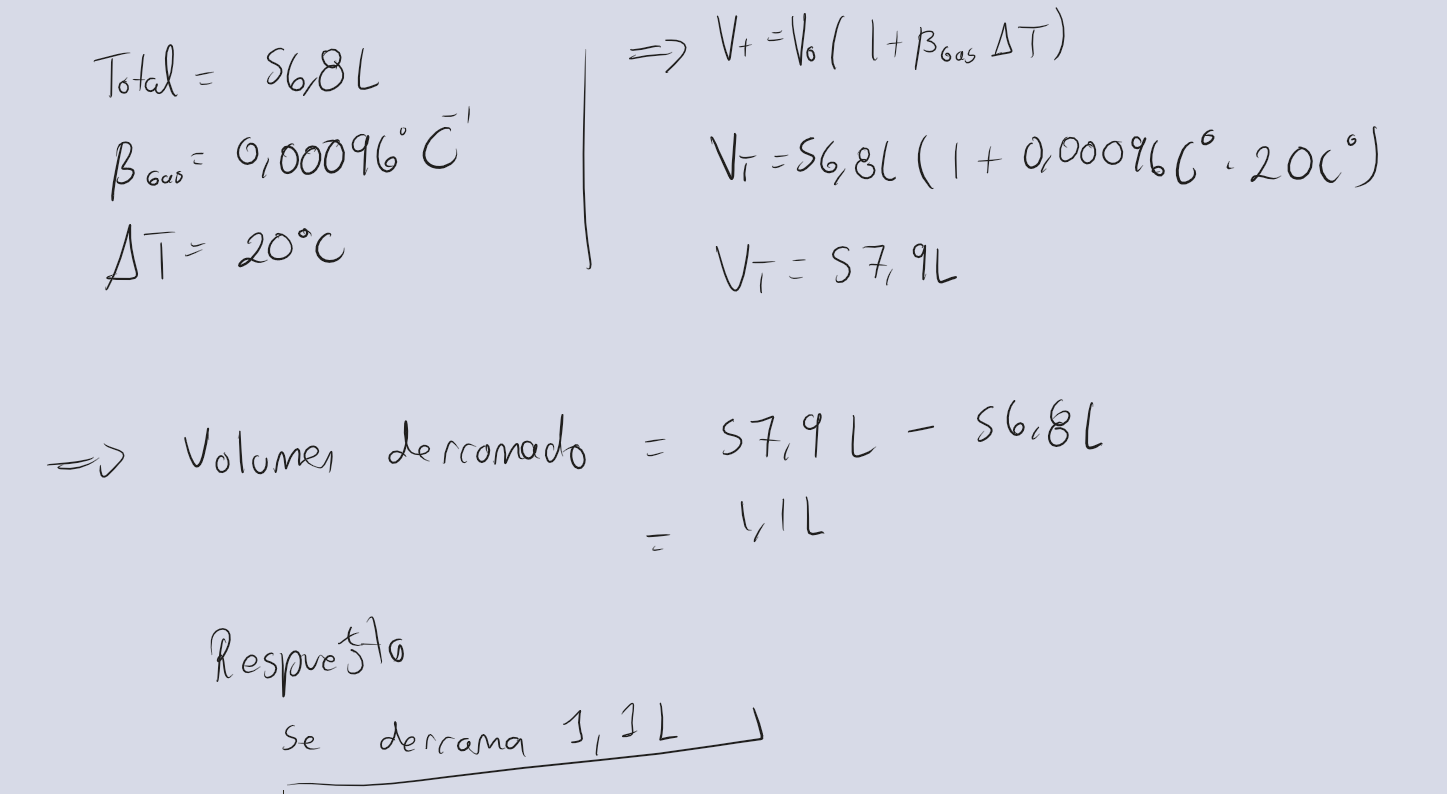 Total = 56,8 L
β Gas = 0,00096 °C⁻¹
ΔT = 20°C
⇒ V+ = V₀ ( 1 + β Gas ΔT )
V_T = 56,8L ( 1 + 0,00096 C° · 20C° )
V_T = 57,9L
⇒ Volumen derramado = 57,9 L - 56,8 L
= 1,1 L
Respuesta
se derrama 1,1 L